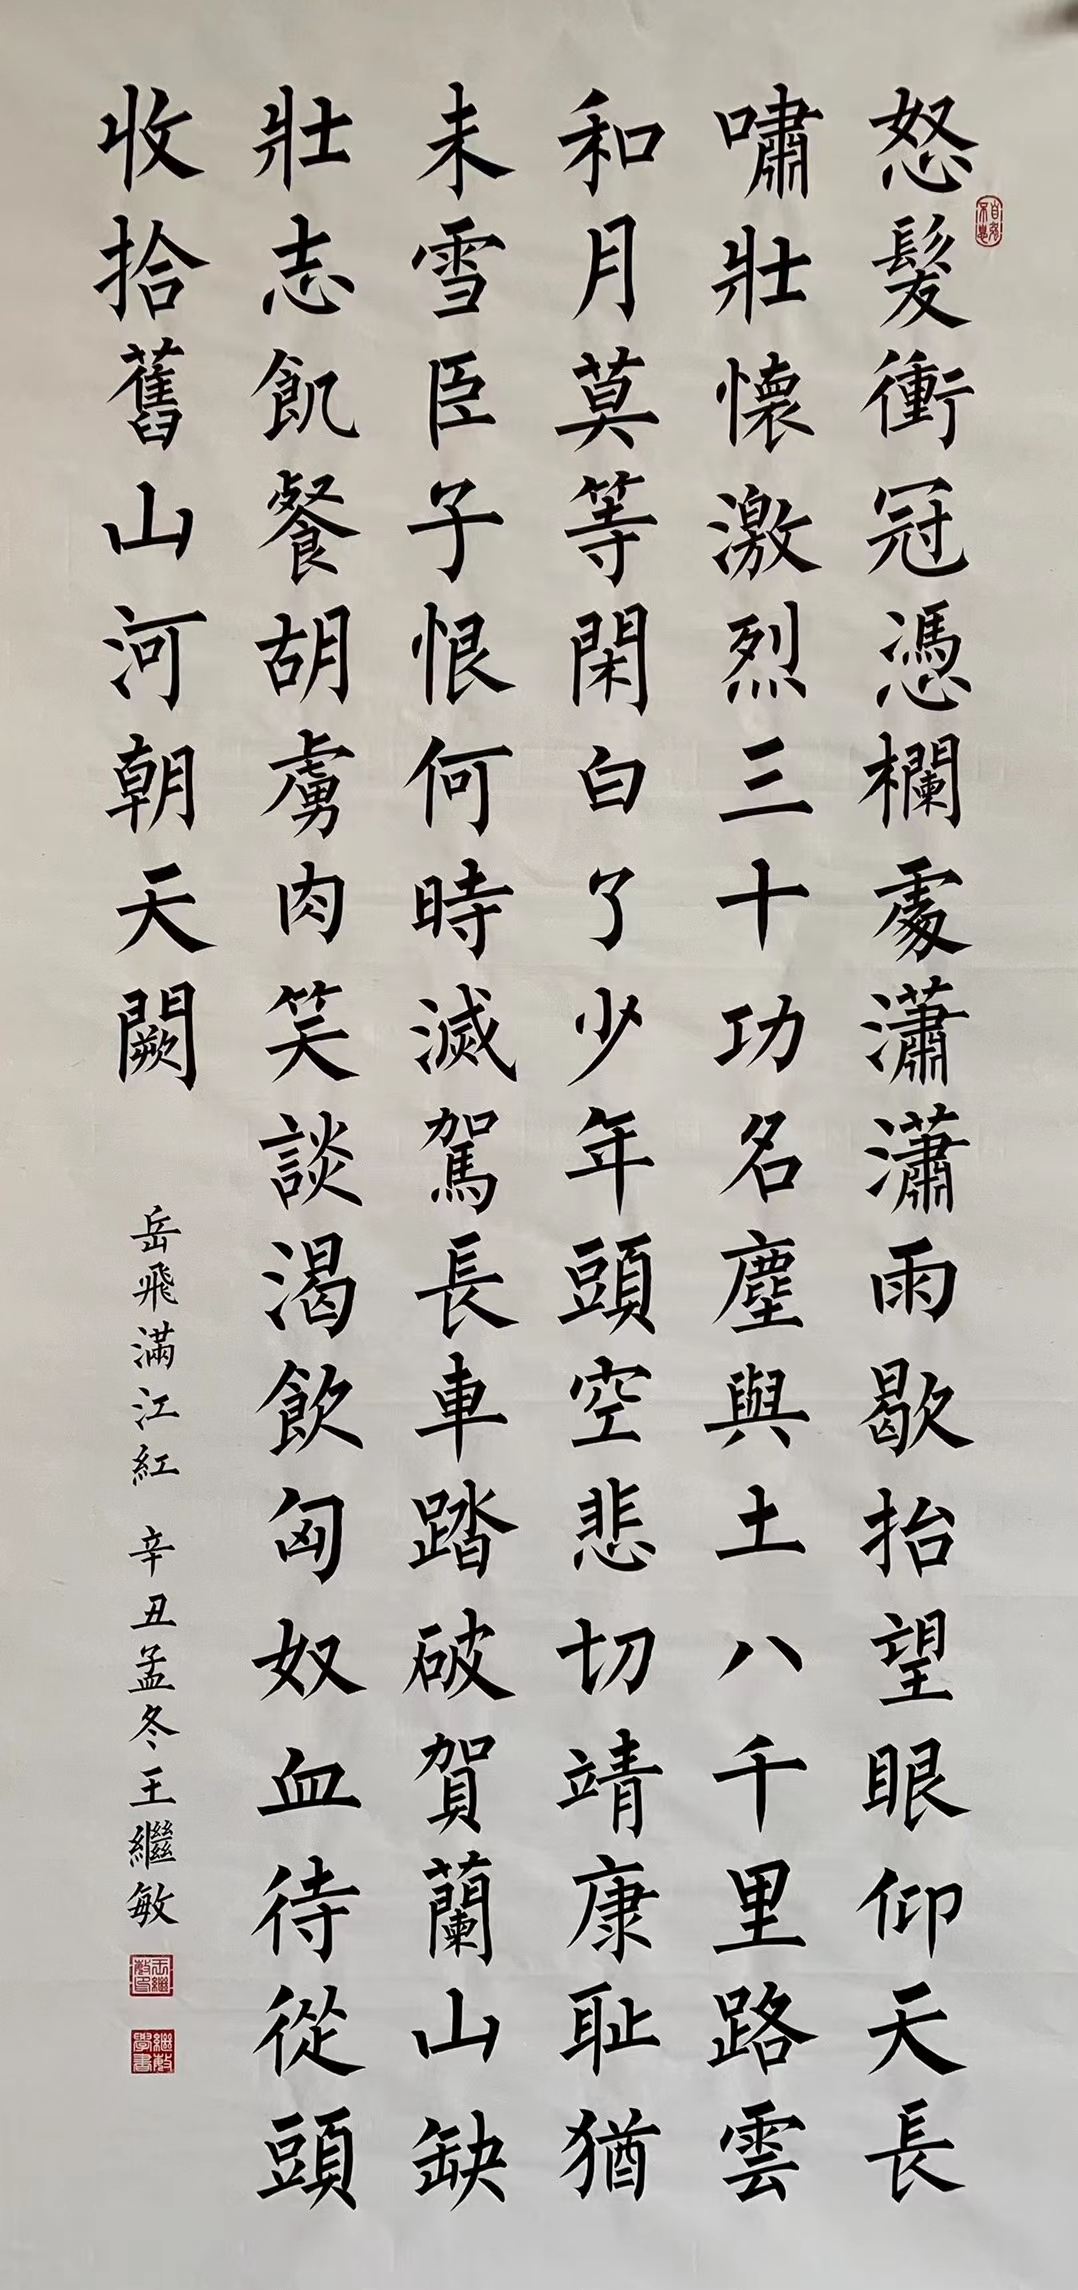 怒髮衝冠憑欄處瀟瀟雨歇抬望眼仰天長
嘯壯懷激烈三十功名塵與土八千里路雲
和月莫等閑白了少年頭空悲切靖康耻猶
未雪臣子恨何時滅駕長車踏破賀蘭山缺
壯志飢餐胡虜肉笑談渴飲匈奴血待從頭
收拾舊山河朝天闕
岳飛滿江紅 辛丑孟冬王繼敏
王繼敏印
繼敏學書